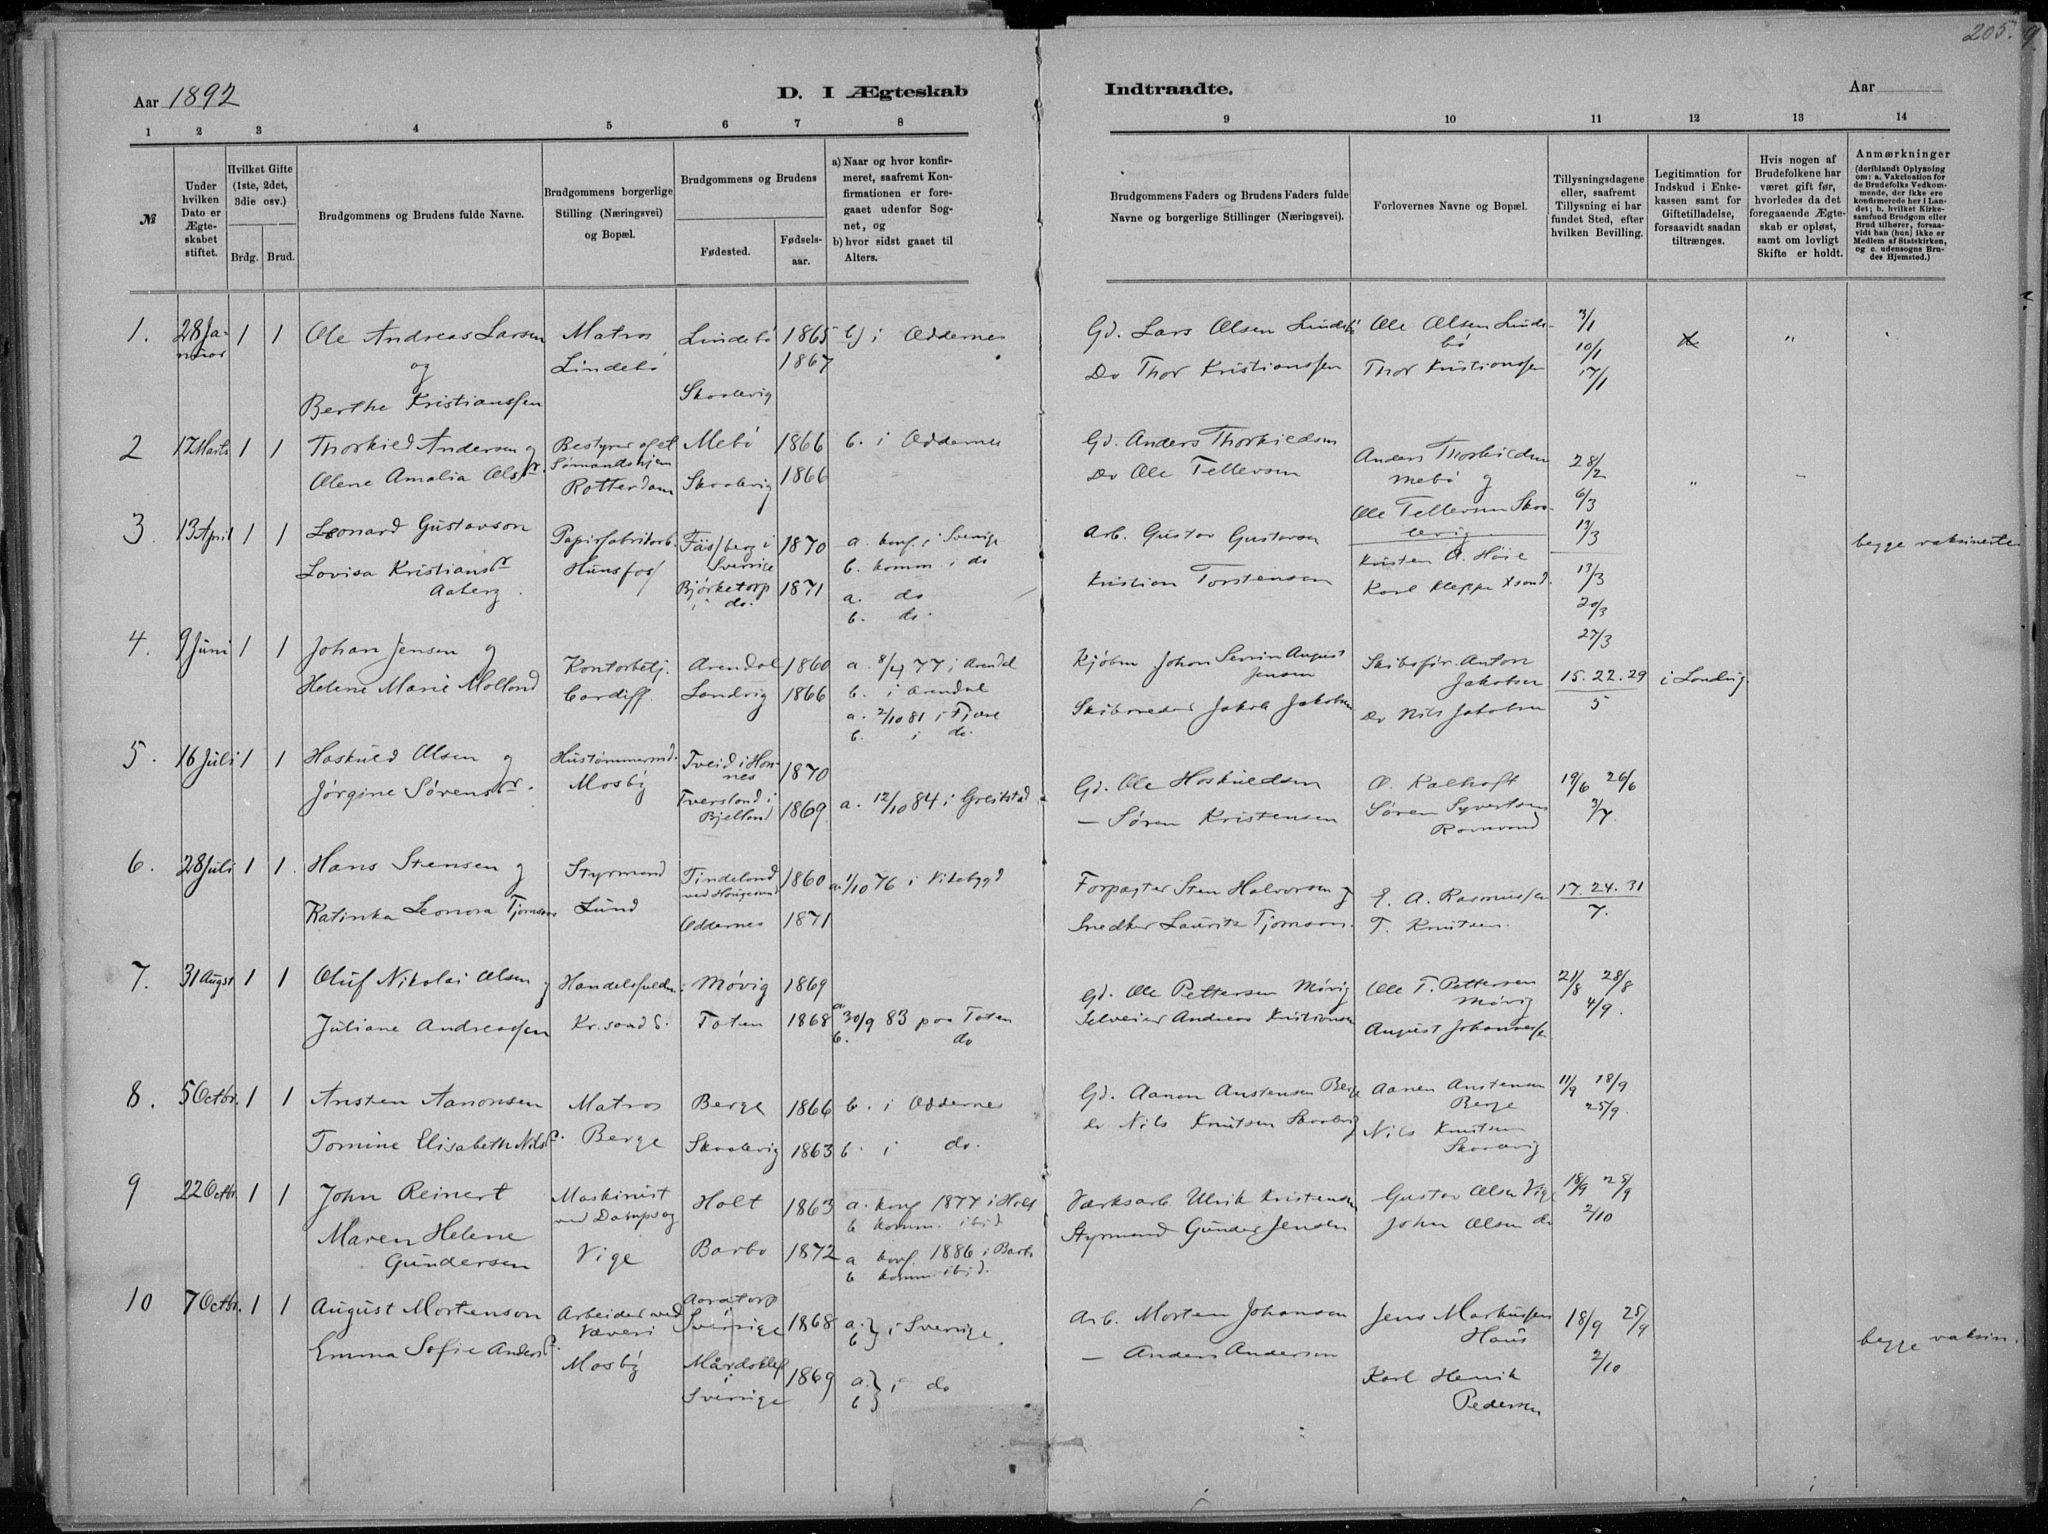 205.
Aar 1892
D. I Ægteskab
Indtraadte.
Aar
1 2 3 4 5 6 7 8 9 10 11 12 13 14
№
Under hvilken Dato er Ægteskabet stiftet.
Hvilket Gifte (1ste, 2det, 3die osv.)
Brdg. Brud.
Brudgommens og Brudens fulde Navne.
Brudgommens borgerlige Stilling (Næringsvei) og Bopæl.
Brudgommens og Brudens
Fødested.
Fødselsaar.
a) Naar og hvor konfirmeret, saafremt Konfirmationen er foregaaet udenfor Sognet, og
b) hvor sidst gaaet til Alters.
Brudgommens Faders og Brudens Faders fulde Navne og borgerlige Stillinger (Næringsvei).
Forlovernes Navne og Bopæl.
Tillysningsdagene eller, saafremt Tillysning ei har fundet Sted, efter hvilken Bevilling.
Legitimation for Indskud i Enkekassen samt for Giftetilladelse, forsaavidt saadan tiltrænges.
Hvis nogen af Brudefolkene har været gift før, hvorledes da det foregaaende Ægteskab er opløst, samt om lovligt Skifte er holdt.
Anmærkninger
(deriblandt Oplysning om: a. Vakcination for de Brudefolks Vedkommende, der ikke ere konfirmerede her i Landet; b. hvilket Kirkesamfund Brudgom eller Brud tilhører, forsaavidt han (hun) ikke er Medlem af Statskirken, og c. udensogns Brudes Hjemsted.)
1. 28 Januar 1 1 Ole Andreas Larsen Matros Lindebø 1865 b) i Oddernes Gd. Lars Olsen Lindebø Ole Olsen Lindebø 3/1
og Lindebø 1867 Do Thor Kristianssen Thor Kristianssen 10/1 17/1
Berthe Kristianssen Skaalevig
2 17 Marts 1 1 Thorkild Andersen og Bestyrer af et Mebø 1866 b. i Oddernes Gd. Anders Thorkildsen Anders Thorkildsen 28/2
Olene Amalia Olsdr. Sømandshjem Rotterdam Skaalevig 1866 Do Ole Tellevsen Mebø og 6/3
Ole Tellevsen Skaalevig 13/3
3 13 April 1 1 Leonard Gustavson Papirfabrikarb. Fässberg i Sverrige 1870 a. konf. i Sverige Arb. Gustav Gustavson Kristen A. Høie 13/3 begge vaksinerte
b. komm. i do
Lovisa Kristiansdr Aaberg. Hunsfos Bjørketorp i do. 1871 a. do Kristian Torstensen Karl Kleppe Xsand 20/3
b. do. 27/3
4. 9 Juni 1 1 Johan Jensen og Kontorbetj. Arendal 1860 a. 8/4 77 i Arendal Kjøbm Johan Severin August Jensen Skibsfør. Anton Jakobsen 15. 22. 29 i Landvig
Helene Marie Molland Cardiff. Landvig 1866 b. i Arendal Skibsreder Jakob Jakobsen Do Nils Jakobsen 5
a. 2/10 81 i Fjære
b. i do.
5. 16 Juli 1 1 Haskuld Olsen og Hustømmermd. Tveid i Hornnes 1870 Gd. Ole Haskuldsen O. Kalhoft 19/6 26/6
Jørgine Sørensdr. Mosby Tversland i Bjelland 1869 a. 12/10 84 i Greipstad — Søren Kristensen Søren Syvertsen 3/7
6. 28 Juli 1 1. Hans Stensen og Styrmand Tindeland ved Haugesund 1860 a. 1/10 76 i Vikebygd Forpagter Sten Halvorsen og E. A. Rasmussen 17. 24. 31
Katinka Leonora Tjomsaas Lund Oddernes 1871 Snedker Lauritz Tjomsaas. T. Knutsen. 7.
7. 31 August 1 1 Oluf Nikolai Olsen og Handelsfuldm. Møvig 1869 Gd. Ole Pettersen Møvig Ole T. Pettersen Møvig 21/8 28/8
Juliane Andreassen Kr.sand S. Toten 1868 a. 30/9 83 paa Toten Selveier Andreas Kristiansen August Johannessen 4/9.
b. do
8. 5 Octbr. 1 1 Ansten Aanonsen Matros Berge 1866 b. i Oddernes Gd. Aanon Anstensen Berge Aanen Anstensen Berge 11/9 18/9
Tomine Elisabeth Nilsd. Berge Skaalevig 1863 b. i do. Do Nils Knutsen Skaalevig Nils Knutsen Skaalevig 25/9.
9 22 Octbr. 1 1 John Reinert Maskinist Holt 1863 a. konf 1877 i Holt Værksarb. Ulrik Kristensen Gustav Olsen Vige 18/9 25/9
ved Dampsag b. komm. ibid
Maren Helene Gundersen Vige Barbo 1872 a konf. 1886 i Barbo Styrmand Gunder Jensen John Olsen do 2/10
b komm. ibid.
10 7 Octbr. 1 1 August Mortenson Arbeider ved Væveri Sverrige 1868 a. b } i Sverige Arb. Morten Johansen Jens Markussen Haus 18/9 25/9 begge vaksin.
Emma Sofie Andersd. Mosby Sverrige 1869 a. b } i do — Anders Andersen Karl Henrik Pedersen 2/10